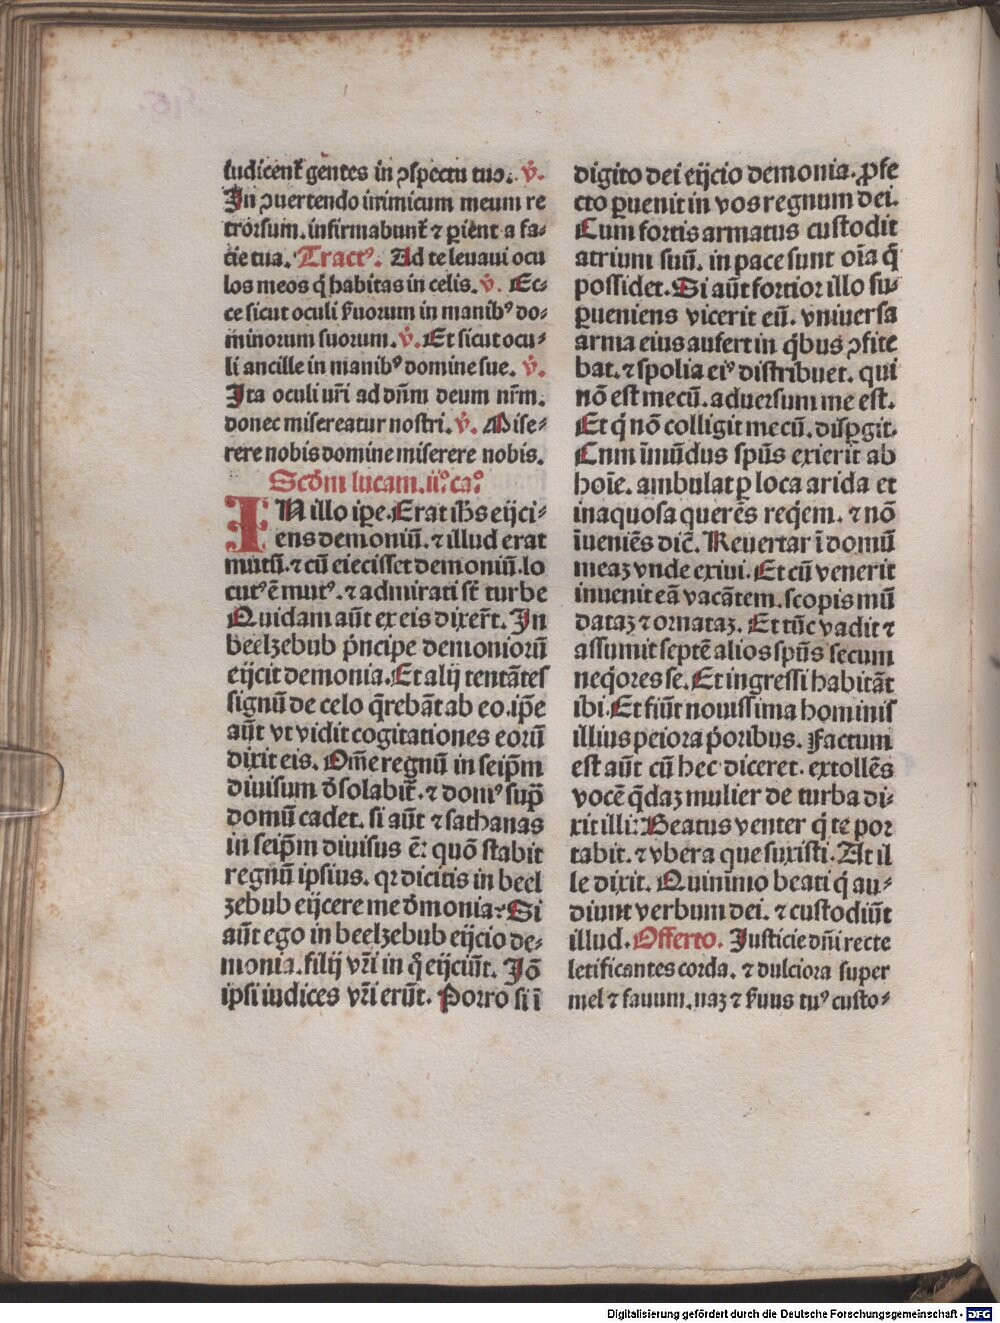 iudicent᷑ gentes in ꝯspectu tuo. v̓.
In ꝯuertendo inimicum meum re
trorsum. infirmabunt᷑ ⁊ ꝑient a fa⸗
cie tua. Tractꝰ. Ad te leuaui ocu
los meos q̇ habitas in celis. v̓. Ec⸗
ce sicut oculi ẜuorum in manibꝰ do⸗
minorum suorum. v̓. Et sicut ocu⸗
li ancille in manibꝰ domine sue. v̓.
Ita oculi nr̃i ad dñm deum nr̃m.
donec misereatur nostri. v̓. Mise⸗
rere nobis domine miserere nobis.
Scd̓m lucam. ii°. ca°.
IN illo ip̃e. Erat ih̃s eijci⸗
ens demoniū. ⁊ illud erat
mutū. ⁊ cū eiecisset demoniū. lo
cutꝰ ē mutꝰ. ⁊ admirati st̄ turbe
Quidam aūt ex eis dixer̃t. In
beelzebub pͥncipe demoniorū
eijcit demonia. Et alij tentātes
signū de celo q̄rebāt ab eo. ip̄e
aūt vt vidit cogitationes eorū
dixit eis. Om̄e regnū in seip̄m
diuisum d̓solabit᷑. ⁊ domꝰ sup̄
domū cadet. si aūt ⁊ sathanas
in seip̄m diuisus ē: quō stabit
regnū ipsius. qꝛ dicitis in beel
zebub eijcere me d̓monia? Si
aūt ego in beelzebub eijcio de⸗
monia. filij vr̄i in q̊ eijciūt. Iō
ipsi iudices vr̄i erūt. Porro si ī
digito dei eijcio demonia. ꝓfe
cto ꝑuenit in vos regnum dei.
Cum fortis armatus custodit
atrium suū. in pace sunt oīa q̄
possidet. Si aūt fortior illo su⸗
ꝑueniens vicerit eū. vniuersa
arma eius aufert in q̇bus ꝯfite
bat. ⁊ spolia eiꝰ distribuet. qui
nō est mecū. aduersum me est.
Et q̇ nō colligit mecū. disꝑgit.
Cnm īmūdus spūs exierit ab
hoīe. ambulat ꝑ loca arida et
inaquosa querēs reqͥem. ⁊ nō
īueniēs dic̄. Reuertar ī domū
meaꝫ vnde exiui. Et cū venerit
inuenit eā vacātem. scopis mū
dataꝫ ⁊ ornataꝫ. Et tūc vadit ⁊
assumit septē alios spūs secum
neqͥores se. Et ingressi habitāt
ibi. Et fiūt nouissima hominis
illius peiora pͥoribus. Factum
est aūt cū hec diceret. extollēs
vocē q̄daꝫ mulier de turba di⸗
xit illi: Beatus venter q̇ te por
tabit. ⁊ vbera que suxisti. At il
le dixit. Quinimo beati q̇ au⸗
diunt verbum dei. ⁊ custodiūt
illud. Offerto. Iusticie dñi recte
letificantes corda. ⁊ dulciora super
mel ⁊ fauum. naꝫ ⁊ ẜuus tuꝰ custo⸗
Digitalisierung gefördert durch die Deutsche Forschungsgemeinschaft - DFG